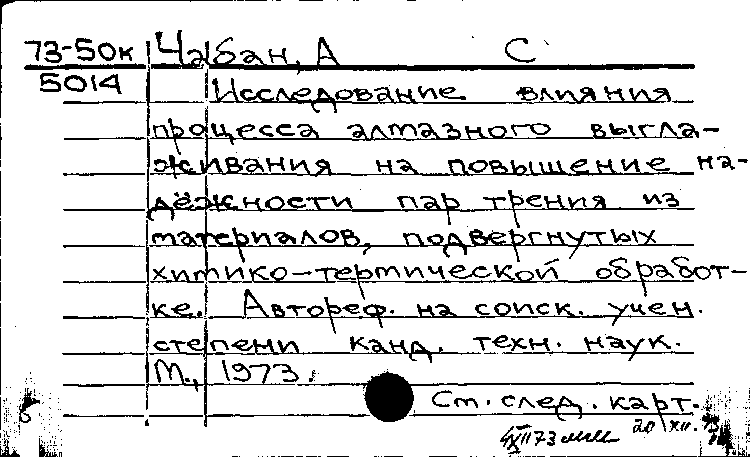 73-50к Чабан, А С
5014 Исследование влияния
процесса алмазного выгла-
живания на повышение на-
дёжности пар трения из
материалов, подвергнутых
химико-термической обработ-
ке. Автореф. на соиск. учен.
степени канд. техн. наук.
М., 1973.
См. след. карт.